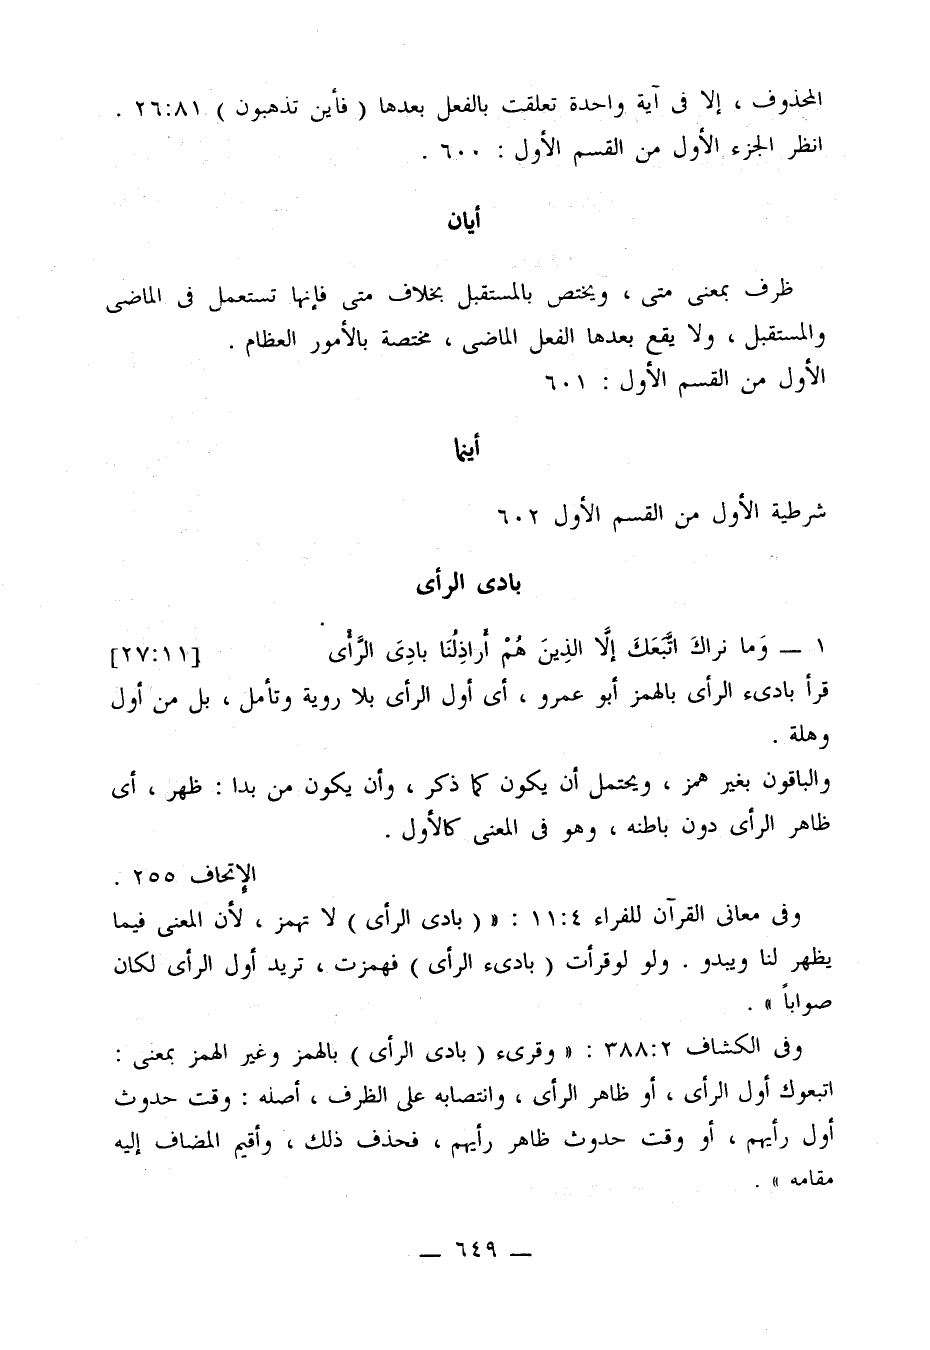 المحذوف ، إلا فى آية واحدة تعلقت بالفعل بعدها ( فأين تذهبون ) ٢٦:٨١ .
انظر الجزء الأول من القسم الأول : ٦٠٠ .
أيان
ظرف بمعنى متى ، ويختص بالمستقبل بخلاف متى فإنها تستعمل فى الماضى
والمستقبل ، ولا يقع بعدها الفعل الماضى ، مختصة بالأمور العظام .
الأول من القسم الأول : ٦٠١
أينما
شرطية الأول من القسم الأول ٦٠٢
بادى الرأى
١ — وَما نراكَ اتَّبَعَكَ إلَّا الذِينَ هُمْ أَراذِلُنَا بادِىَ الرَّأْى [٢٧:١١]
قرأ بادىء الرأى بالهمز أبو عمرو ، أى أول الرأى بلا روية وتأمل ، بل من أول
وهلة .
والباقون بغير همز ، ويحتمل أن يكون كما ذكر ، وأن يكون من بدا : ظهر ، أى
ظاهر الرأى دون باطنه ، وهو فى المعنى كالأول .
الإتحاف ٢٥٥ .
وفى معانى القرآن للفراء ١١:٤ : « ( بادى الرأى ) لا تهمز ، لأن المعنى فيما
يظهر لنا ويبدو . ولو لوقرأت ( بادىء الرأى ) فهمزت ، تريد أول الرأى لكان
صواباً » .
وفى الكشاف ٣٨٨:٢ : « وقرىء ( بادى الرأى ) بالهمز وغير الهمز بمعنى :
اتبعوك أول الرأى ، أو ظاهر الرأى ، وانتصابه على الظرف ، أصله : وقت حدوث
أول رأيهم ، أو وقت حدوث ظاهر رأيهم ، فحذف ذلك ، وأقيم المضاف إليه
مقامه » .
— ٦٤٩ —